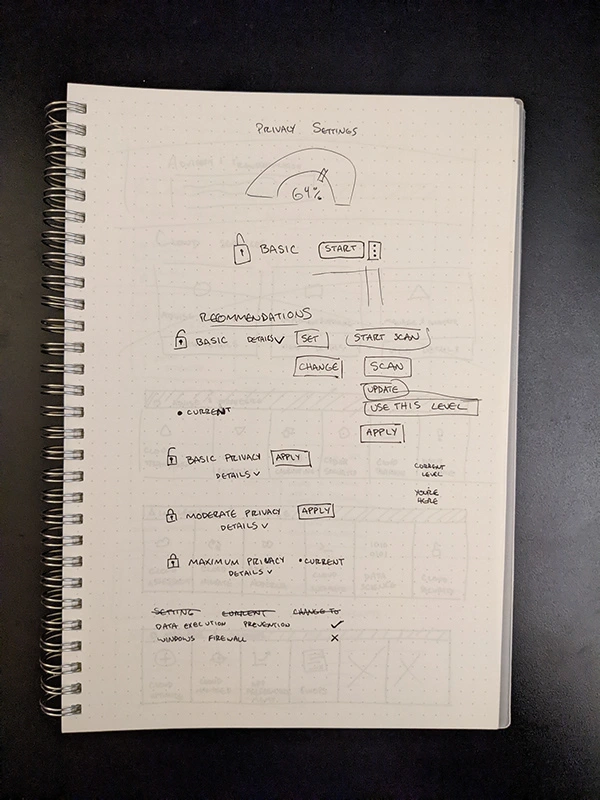 PRIVACY SETTINGS
64%
BASIC START
RECOMMENDATIONS
BASIC DETAILS SET START SCAN
CHANGE SCAN
UPDATE
• CURRENT USE THIS LEVEL
APPLY
BASIC PRIVACY APPLY
DETAILS
CURRENT
LEVEL
YOU'RE
HERE
MODERATE PRIVACY APPLY
DETAILS
MAXIMUM PRIVACY • CURRENT
DETAILS
SETTING CURRENT CHANGE TO
DATA EXECUTION PREVENTION ✓
WINDOWS FIREWALL ✕